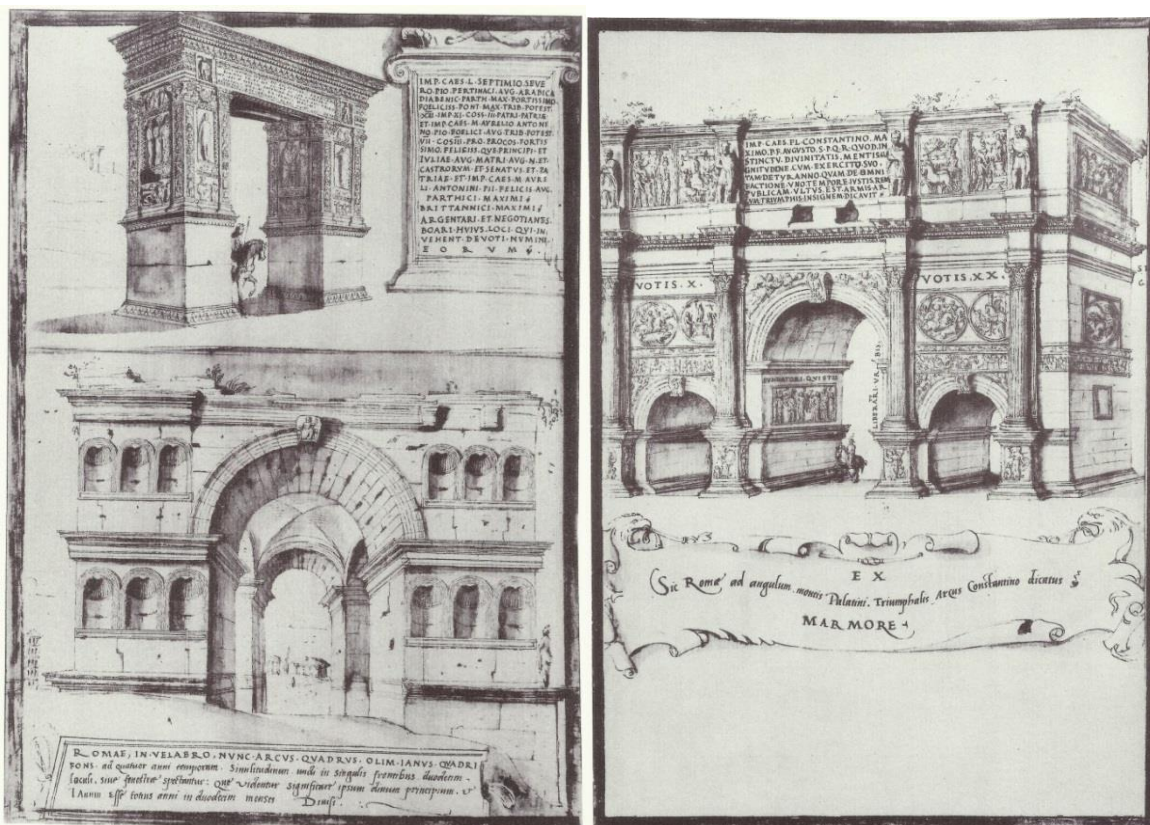 IMP·CAES·L·SEPTIMIO·SEVE
RO·PIO·PERTINACI·AVG·ARABICA
DIABENIC·PARTH·MAX·FORTISSIMO
FOELICISS·PONT·MAX·TRIB·POTEST
IMP·XI·COSS·III·PATRI·PATRIE
ET·IMP·CAES·M·AVRELIO·ANTONI
NO·PIO·FOELICI·AVG·TRIB·POTEST
VII·COSIII·PRO·PROCOS·FORTIS
SIMO·FELICISS·QVE·PRINCIPI·ET
IVLIAE·AVG·MATRI·AVG·N·ET
CASTRORVM·ET·SENATVS·ET·PA
TRIAE·ET·IMP·CAES·M·AVRE
LI·ANTONINI·PII·FELICIS·AVG.
PARTHICI·MAXIMI
BRITTANNICI·MAXIMI
ARGENTARI·ET·NEGOTIANTS
BOARI·HVIVS·LOCI·QVI·IN
VEHENT·DEVOTI·NVMINI
EORVM
ROMAE, IN·VELABRO, NVNC·ARCVS·QVADRVS, OLIM·IANVS·QVADRI
FONS. ad quatuor anni temporum. Similitudinem undi in singulis frontibus duodecim.
loculi, sive fenestræ spectantur: Que videntur significare ipsum divum principium. et
IAnum esse totius anni in duodecim menses Divisi.
IMP·CAES·FL·CONSTANTINO·MA
XIMO·P·F·AVGVSTO·S·P·Q·R·QVOD·IN
STINCTV·DIVINITATIS, MENTIS
GNITVDENE·CVM·EXERCITV·SVO
TAM·DE·TYRANNO·QVAM·DE·OMNI
FACTIONE·VNO·TEMPORE·IVSTIS·REM
PVBLICAM·VLTVS·EST·ARMIS·AR
VM·TRIVMPHIS·INSIGNEM·DICAVIT
VOTIS·X·
VOTIS·XX·
FVNDATORI·QVIETIS
LIBERATORI·VRBIS·
EX
Sic Romæ ad angulum montis Palatini. Triumphalis Arcus Constantino dicatus
MARMORE